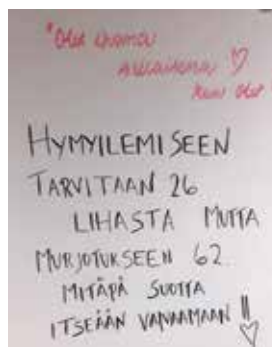 *Olet ihana
sellaisena ♡
Kuin Olet
HYMYILEMISEEN
TARVITAAN 26
LIHASTA MUTTA
MURJOTUKSEEN 62.
MITÄPÄ SUOTTA
ITSEÄÄN VAIVAAMAAN !!
♡